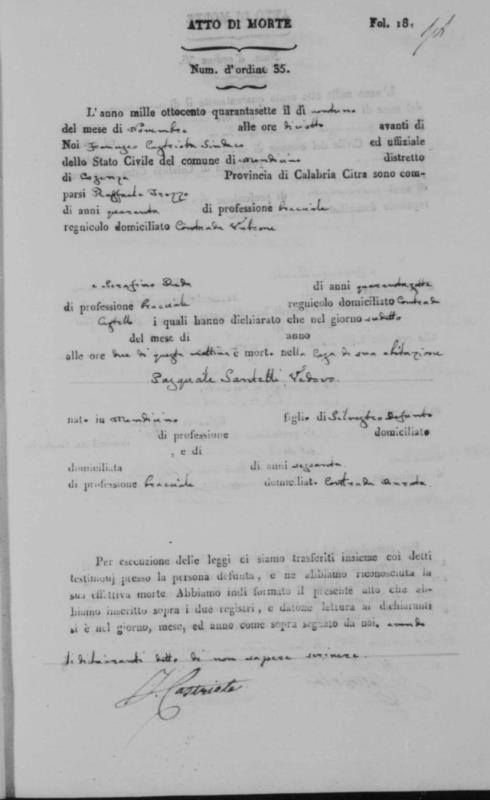 ATTO DI MORTE Fol. 18.
Num. d'ordine 35.
L'anno mille ottocento quarantasette il dì ventuno
del mese di Novembre alle ore diciotto avanti di
Noi Castriota Sindaco ed uffiziale
dello Stato Civile del comune di Mendicino distretto
di Cosenza Provincia di Calabria Citra sono com-
parsi Raffaele
di anni quaranta di professione bracciale
regnicolo domiciliato Contrada
e Serafino di anni quarantasette
di professione bracciale regnicolo domiciliato Contrada
Castello i quali hanno dichiarato che nel giorno sudetto
del mese di anno
alle ore due di questa mattina è mort. nella Casa di sua abitazione
Pasquale Santelli Vedovo.
nato in Mendicino figlio di Silvestro Defunto
di professione domiciliato
, e di
domiciliata di anni sessanta
di professione bracciale domiciliato Contrada
Per esecuzione delle leggi ci siamo trasferiti insieme coi detti
testimonj presso la persona defunta, e ne abbiamo riconosciuta la
sua effettiva morte. Abbiamo indi formato il presente atto che ab-
biamo inscritto sopra i due registri, e datone lettura ai dichiaranti
si è nel giorno, mese, ed anno come sopra segnato da noi. avendo
li dichiaranti detto di non sapere scrivere.